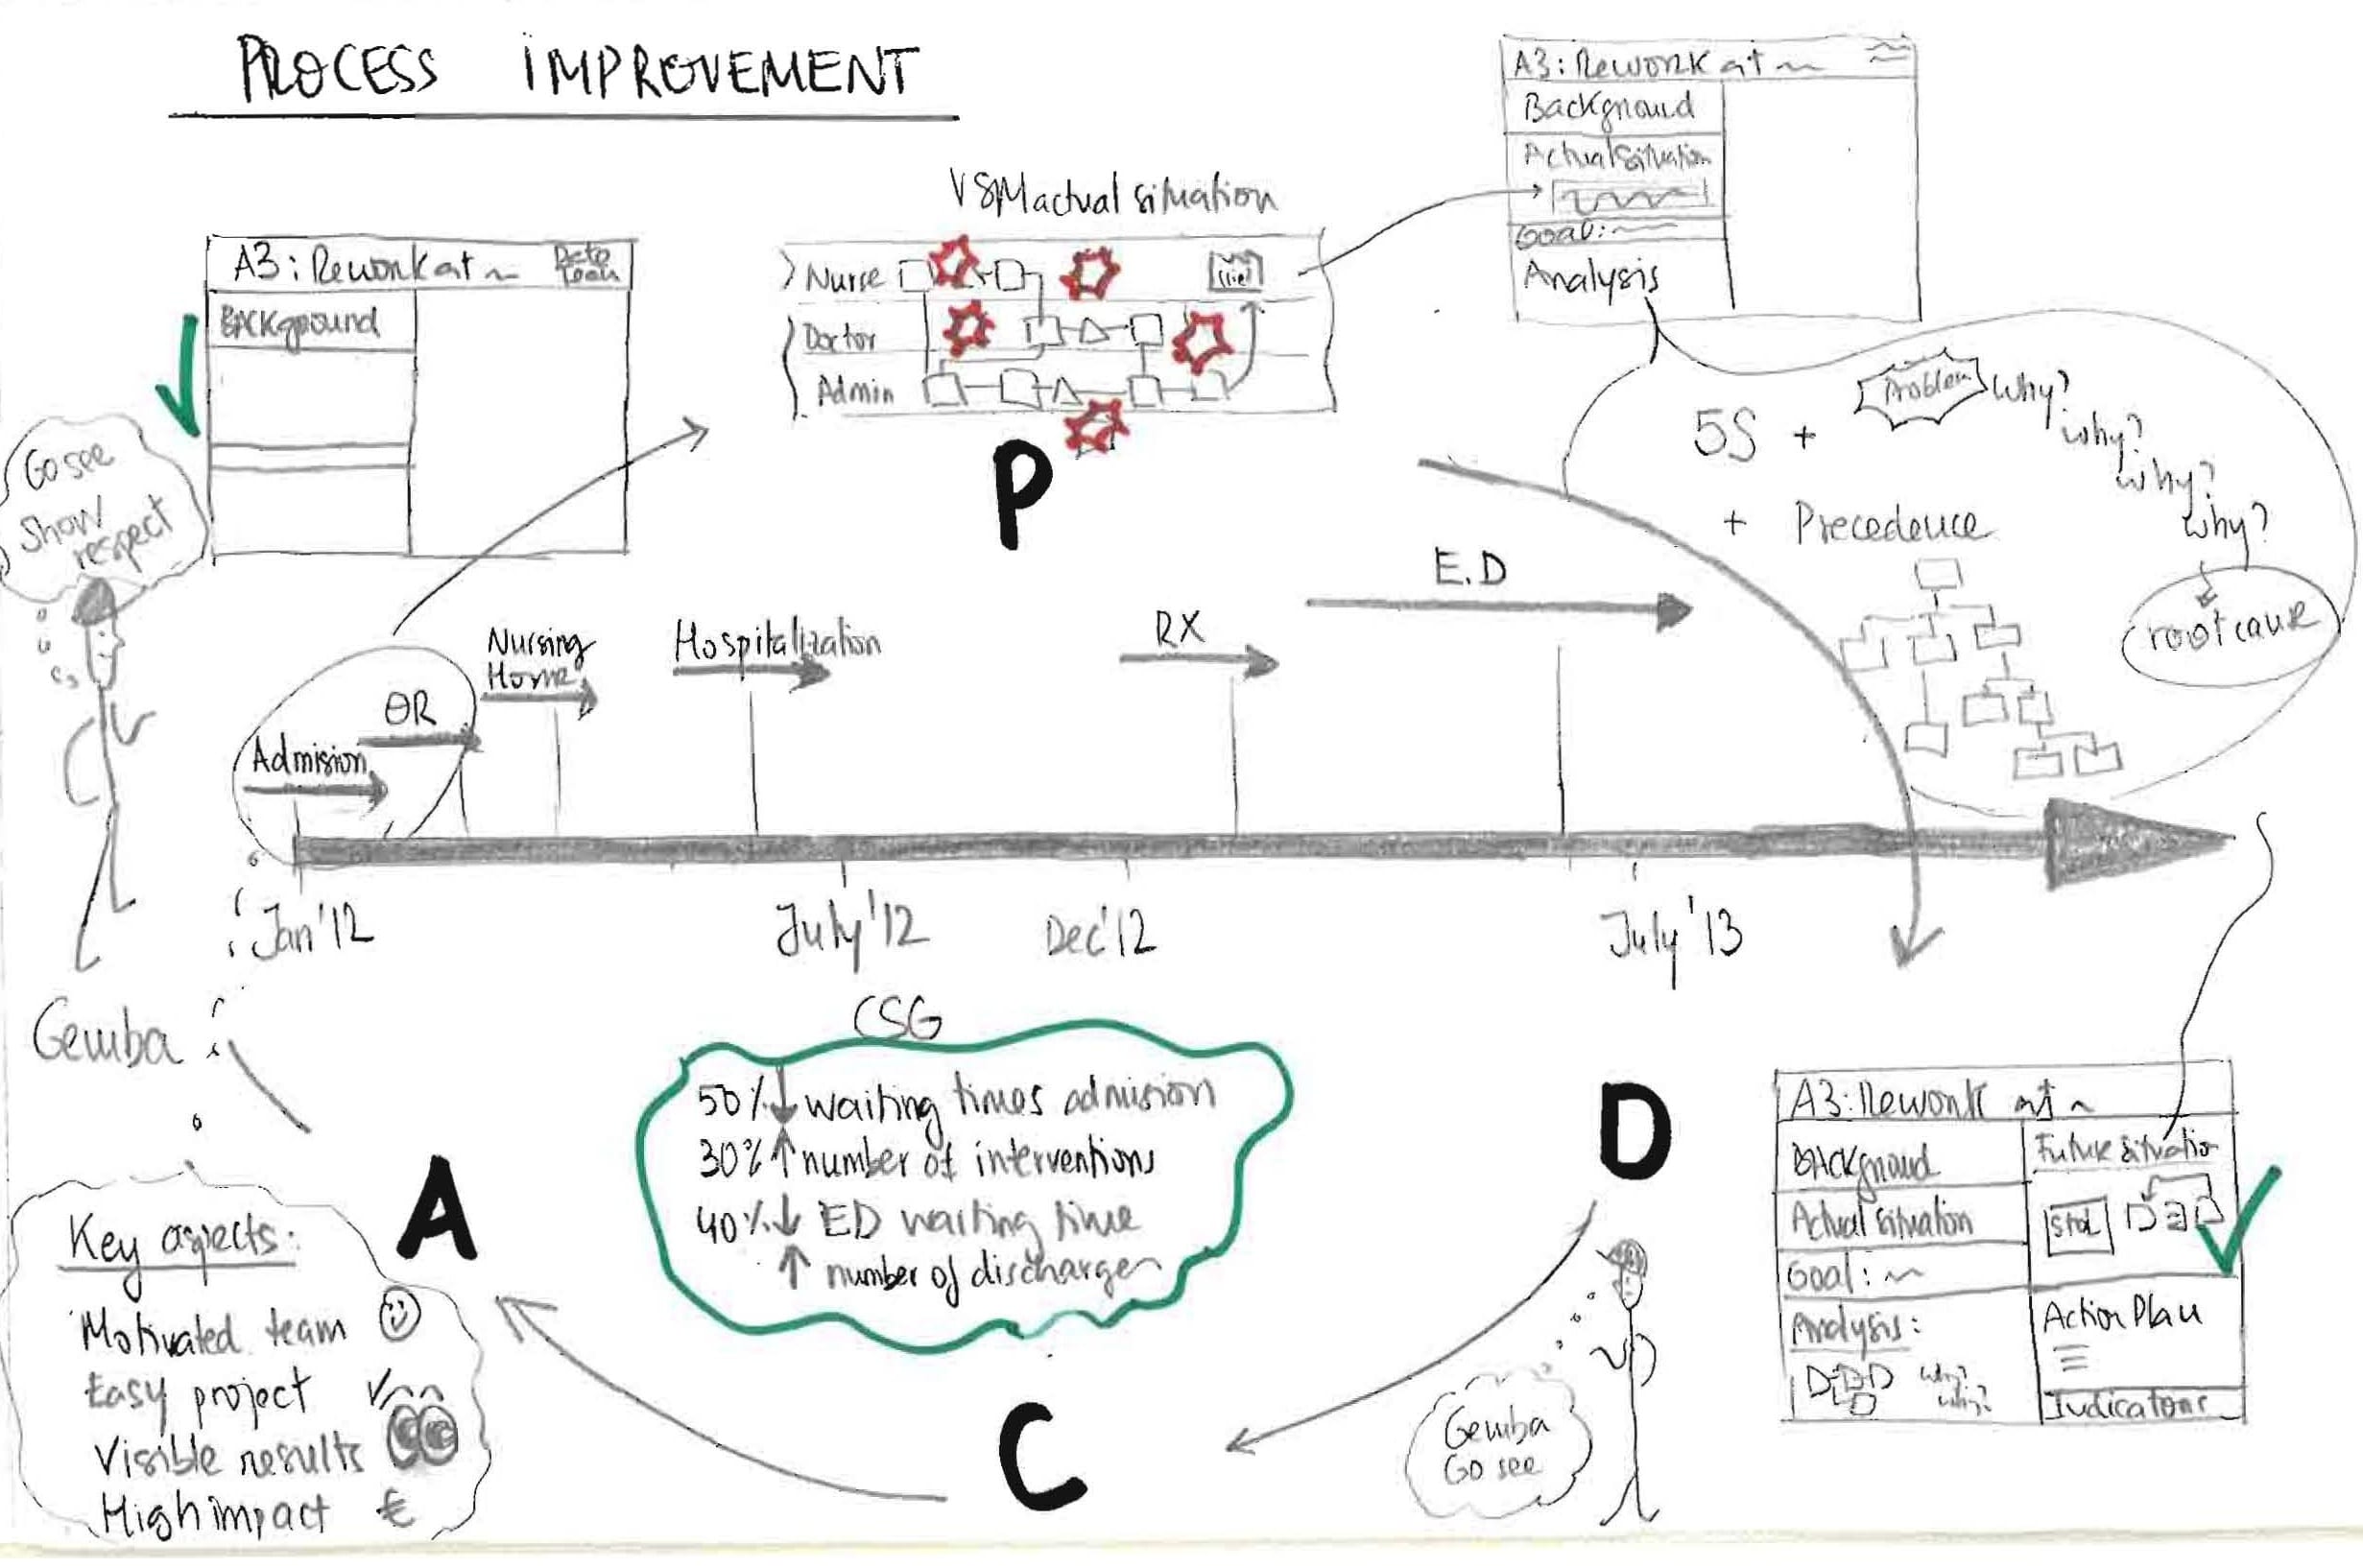 PROCESS IMPROVEMENT
A3: Rework at
Background
Actual Situation
Goal:
Analysis
VSM actual situation
Nurse
Doctor
Admin
A3: Rework at
Date
Team
BACKground
Go see
Show
respect
P
5S +
Problem
Why?
why?
why?
why?
+ Precedence
root cause
Admision
OR
Nursing
Home
Hospitalization
RX
E.D
Jan'12
July'12
Dec'12
July'13
Gemba
CSG
50%↓ waiting times admision
30%↑ number of interventions
40%↓ ED waiting time
↑ number of discharges
A
D
C
Key aspects:
Motivated team
Easy project
Visible results
High impact €
Gemba
Go see
A3: Rework at
BACKground
Actual situation
Goal:
Analysis:
why?
why?
Future situation
Action Plan
Indicators